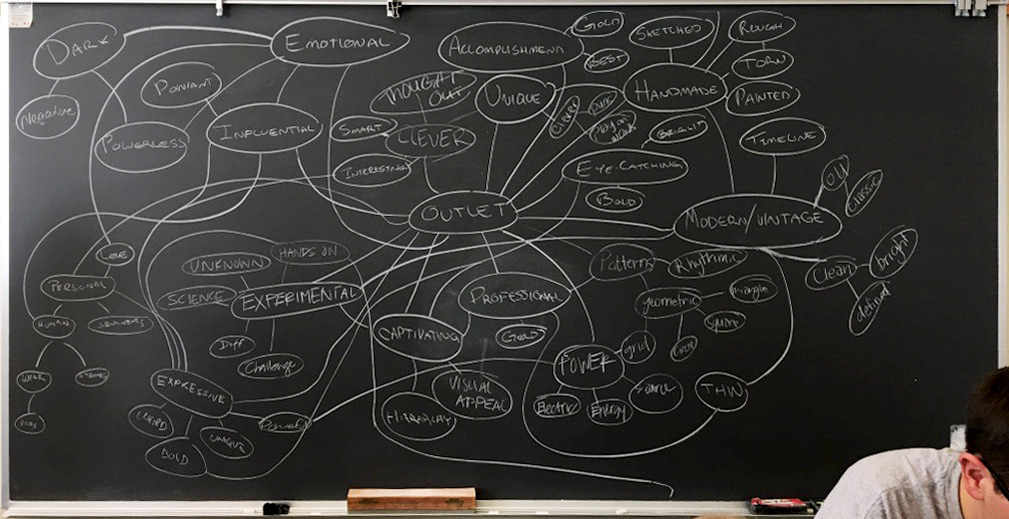 DARK
EMOTIONAL
ACCOMPLISHMENT
GOLD
BEST
SKETCHED
ROUGH
TORN
HANDMADE
PAINTED
Negative
POWERLESS
INFLUENTIAL
THOUGHT
OUT
UNIQUE
CLEVER
SMART
CLEVER
INTERESTING
EYE-CATCHING
BOLD
TIMELINE
OUTLET
MODERN/VINTAGE
OLD
Classic
Clean
bright
defined
LOVE
PERSONAL
HUMAN
UNKNOWN
HANDS ON
SCIENCE
EXPERIMENTAL
Diff
Challenge
PROFESSIONAL
GOLD
CAPTIVATING
VISUAL
APPEAL
HIERARCHY
Patterns
Rhythmic
geometric
triangle
square
grid
POWER
Electric
Energy
Source
EXPRESSIVE
WEIRD
BOLD
UNIQUE
Powerful